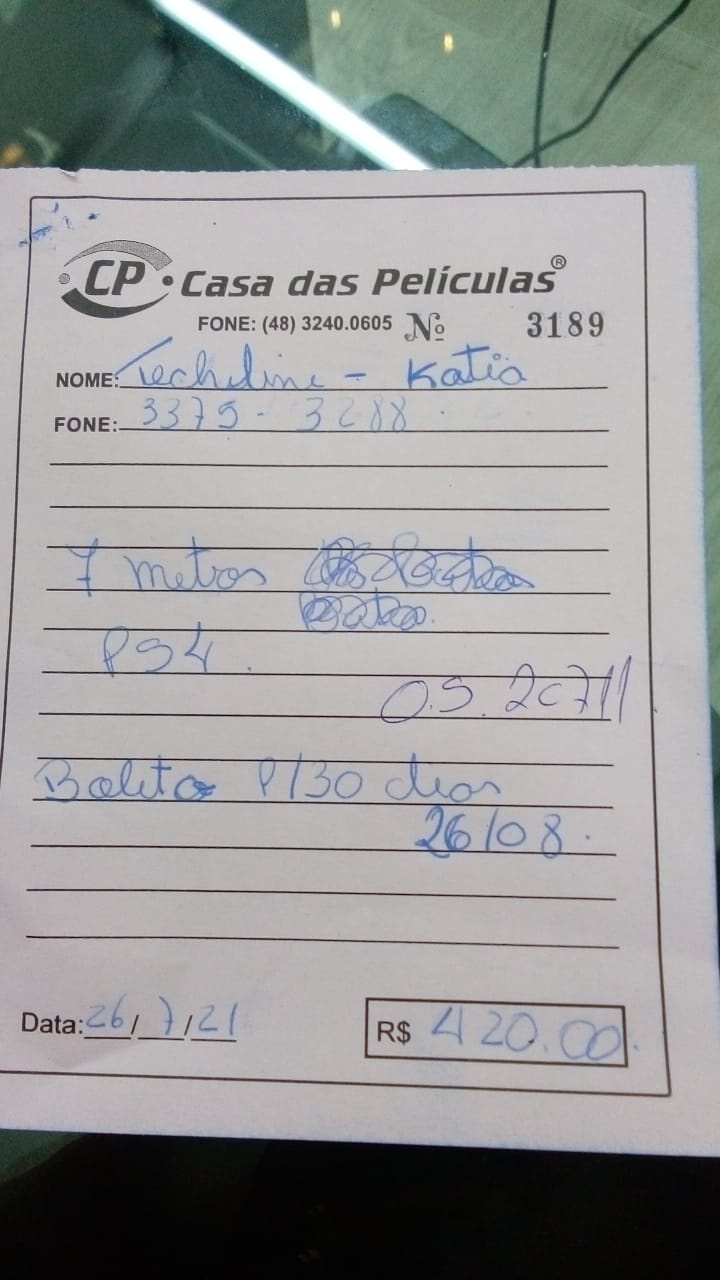 CP Casa das Películas®
FONE: (48) 3240.0605 Nº 3189
NOME: Techline - Katia
FONE: 3375-3288
7 metros
PS4.
O.S. 20711
Boleto P/30 dias
26/08.
Data: 26/7/21
R$ 420.00.